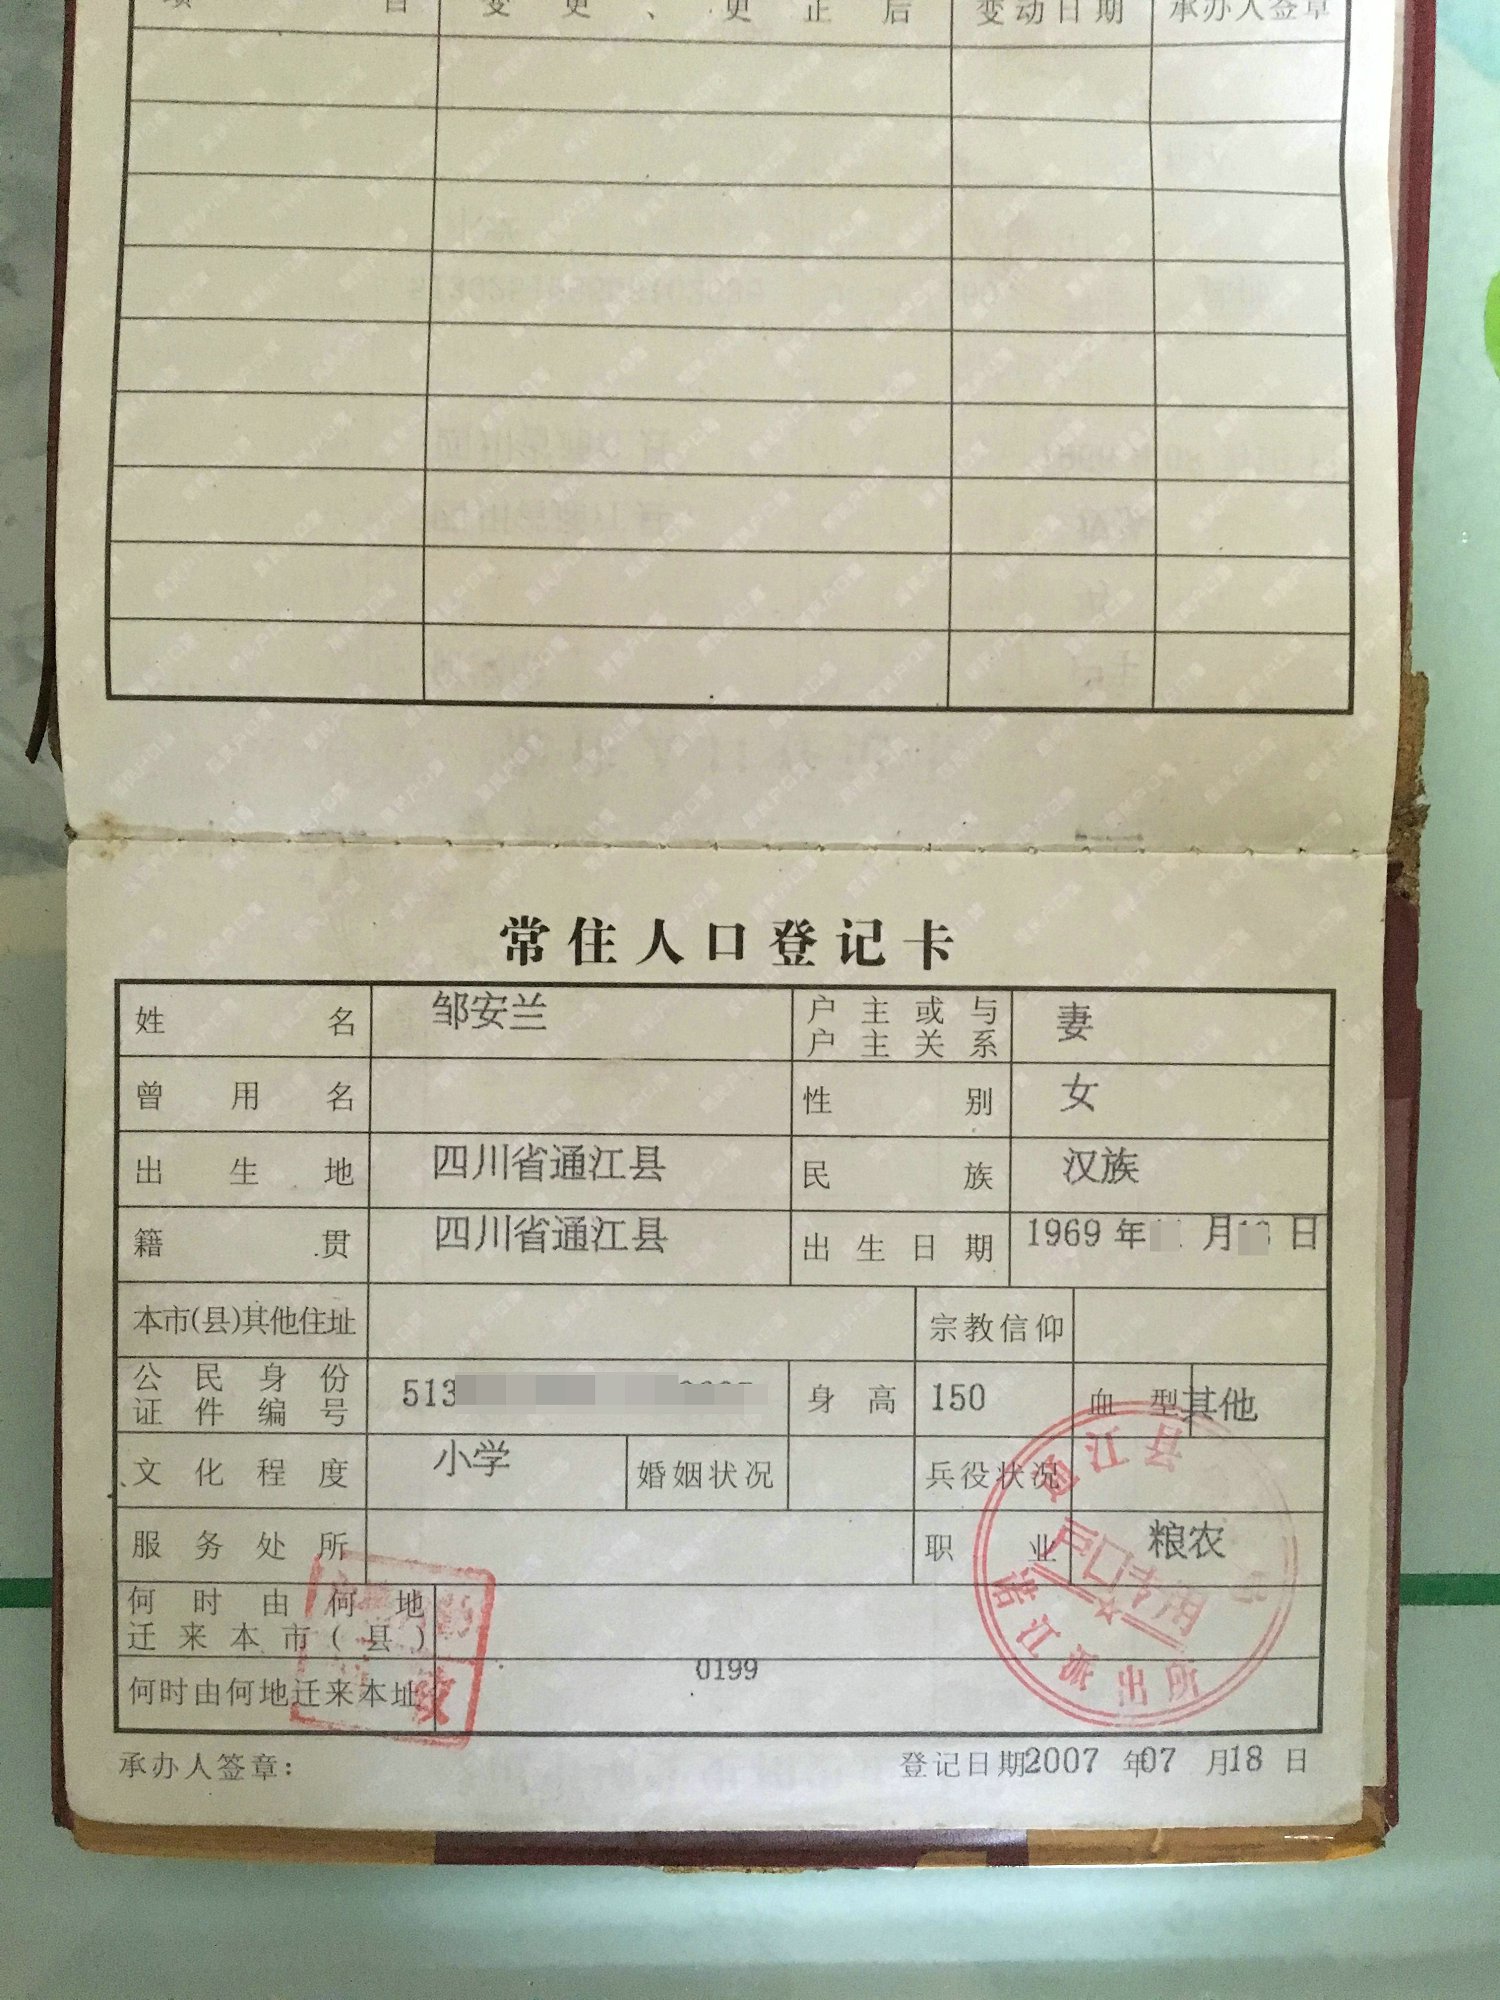 项 目 变 更 、 更 正 后 变动日期 承办人签章
常住人口登记卡
姓 名 邹安兰 户主或与户主关系 妻
曾用名 性别 女
出生地 四川省通江县 民族 汉族
籍贯 四川省通江县 出生日期 1969 年 月 日
本市(县)其他住址 宗教信仰
公民身份证件编号 513 身高 150 血型 其他
文化程度 小学 婚姻状况 兵役状况
服务处所 职业 粮农
何时由何地迁来本市(县)
何时由何地迁来本址 0199
户口专用
派出所
承办人签章: 登记日期 2007 年 07 月 18 日